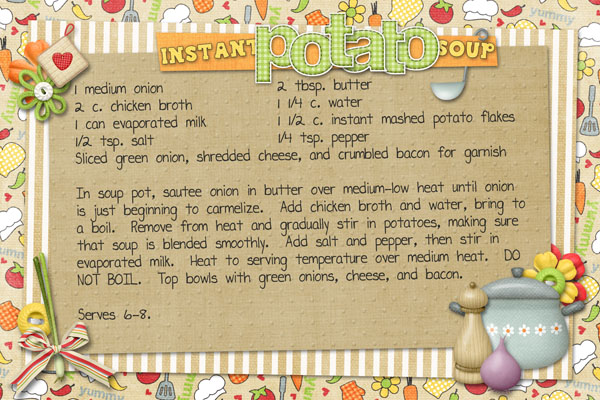 INSTANT potato SOUP
1 medium onion 2 tbsp. butter
2 c. chicken broth 1 1/4 c. water
1 can evaporated milk 1 1/2 c. instant mashed potato flakes
1/2 tsp. salt 1/4 tsp. pepper
Sliced green onion, shredded cheese, and crumbled bacon for garnish
In soup pot, sautee onion in butter over medium-low heat until onion
is just beginning to carmelize. Add chicken broth and water, bring to
a boil. Remove from heat and gradually stir in potatoes, making sure
that soup is blended smoothly. Add salt and pepper, then stir in
evaporated milk. Heat to serving temperature over medium heat. DO
NOT BOIL. Top bowls with green onions, cheese, and bacon.
Serves 6-8.
yummy
yummy
yummy
yummy
yummy